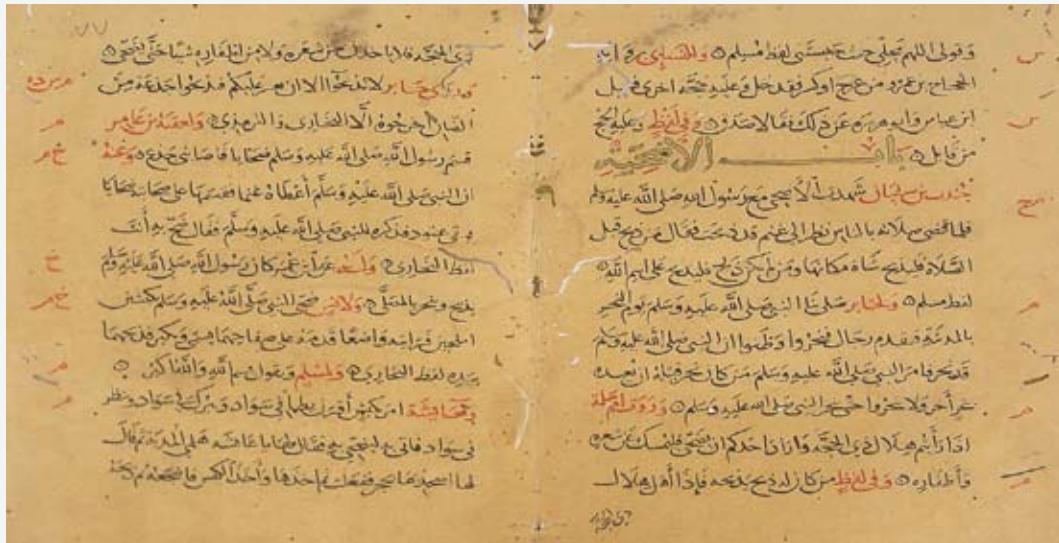 وقولى اللهم محلى حيث حبستنى لفظ مسلم ۞ وللنسائى
الحجاج بن عمرو من عرج او كسر فقد حل وعليه حجة اخرى فقيل
ابن عباس وابى هريرة عن ذلك فقالا صدق ۞ وفى لفظ وعليه الحج
من قابل ۞ باب الاضحية
جندب بن سفيان شهدت الاضحى مع رسول الله صلى الله عليه وسلم
فلما قضى صلاته بالناس نظر الى غنم قد ذبحت فقال من ذبح قبل
الصلاة فليذبح شاة مكانها ومن لم يكن ذبح فليذبح على اسم الله ۞
لفظ مسلم ۞ ولجابر صلى بنا النبى صلى الله عليه وسلم يوم النحر
بالمدينة فتقدم رجال فنحروا وظنوا ان النبى صلى الله عليه وسلم
قد نحر فامر النبى صلى الله عليه وسلم من كان نحر قبله ان يعيد
بنحر آخر ولا ينحروا حتى ينحر النبى صلى الله عليه وسلم ۞ وروت ام سلمة
اذا رأيتم هلال ذى الحجة واراد احدكم ان يضحى فليمسك عن شعره
وأظفاره ۞ وفى لفظ من كان له ذبح يذبحه فإذا أهل هلال
ذى الحجة فلا ياخذن من شعره ولا من اظفاره شيئا حتى يضحى ۞
وروى جابر لا تذبحوا الا مسنة الا ان يعسر عليكم فتذبحوا جذعة من
الضأن اخرجوه الا البخارى والترمذى ۞ ولعقبة بن عامر
قسم رسول الله صلى الله عليه وسلم ضحايا فاصابنى جذع ۞ وعنه
ان النبى صلى الله عليه وسلم أعطاه غنما فقسمها على صحابته ضحايا
فبقى عتود فذكره للنبى صلى الله عليه وسلم فقال ضح به أنت
لفظ البخارى ۞ كان رسول الله صلى الله عليه وسلم
يذبح وينحر بالمصلى ۞ ولانس ضحى النبى صلى الله عليه وسلم بكبشين
املحين فرايته واضعا قدمه على صفاحهما يسمى ويكبر فذبحهما
بيده لفظ البخارى ۞ ولمسلم ويقول بسم الله والله اكبر ۞
وعن عائشة امر بكبش أقرن يطأ فى سواد ويبرك فى سواد وينظر
فى سواد فاتى به ليضحى به فقال لها يا عائشة هلمى المدية ثم قال
لها اشحذيها بحجر ففعلت ثم اخذها وأخذ الكبش فأضجعه ثم ذبحه